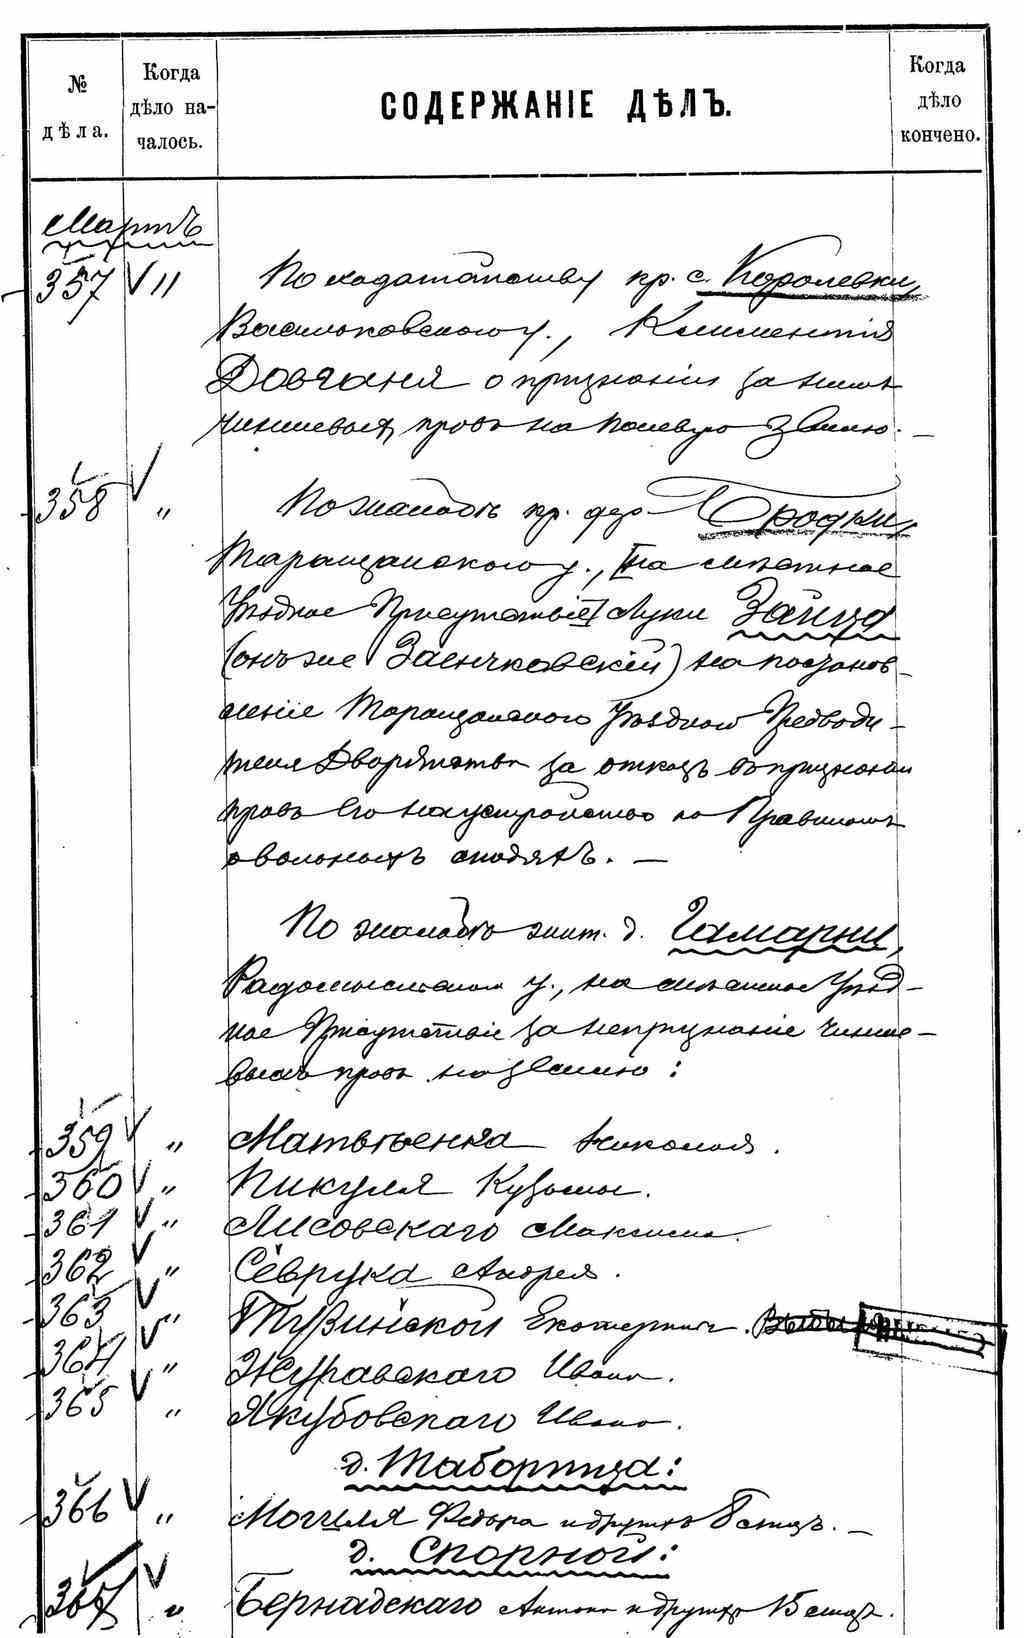 № дѣла.
Когда дѣло на-чалось.
СОДЕРЖАНІЕ ДѢЛЪ.
Когда дѣло кончено.
Мартъ
357 11 По ходатайству кр. с. Королевки,
Васильковскаго у., Климентія
Довганя о признаніи за нимъ
чиншевыхъ правъ на полевую землю. —
358 " По жалобѣ кр. дер. Бродки,
Таращанскаго у., [на мѣстное
Уѣздное Присутствіе] Луки Зайца
(онъ же Заенчковскій) на постанов-
леніе Таращанскаго Уѣзднаго Предводи-
теля Дворянства за отказъ въ признаніи
правъ его на устройство по Правиламъ
о вольныхъ людяхъ. —
По жалобѣ жит. д. Гамарни,
Радомысльскаго у., на мѣстное Уѣзд-
ное Присутствіе за непризнаніе чинше-
выхъ правъ на землю:
359 " Матвѣенка Николая.
360 " Пикуля Кузьмы.
361 " Лисовскаго Максима.
362 " Севрука Андрея.
363 " Тузинской Екатерины.
364 " Журавскаго Ивана.
365 " Якубовскаго Ивана.
д. Таборища:
366 " Могиля Федора и другихъ —
д. Спорной:
367 " Бернадскаго Антона и другихъ